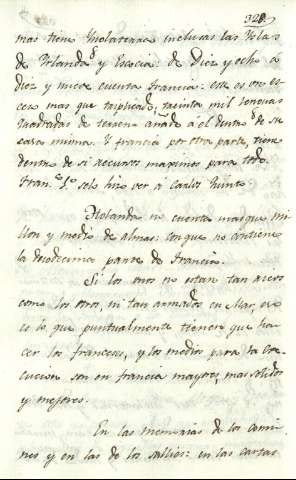 328.
mas tiene Inglaterra inclusas las Yslas
de Yrlanda y Escocia: de Diez y ocho a
diez y nueve cuenta Francia: este es un ex-
ceso mas que triplicado, treinta mil lenguas
quadradas de terreno añade a el dentro de su
casa misma. Y francia por otra parte, tiene
dentro de si recursos maximos para todo.
Fran.co 1.o solo hizo ver a Carlos Quinto
Holanda no cuenta mas que mi-
llon y medio de almas: con que no contiene
la duodecima parte de Francia.
Si los unos no estan tan ricos
como los otros, ni tan armados en Mar, eso
es lo que puntualmente tienen que ha-
cer los franceses, y los medios para la exe-
cucion son en francia mayores, mas solidos
y mejores.
En las memorias de los Comi-
nes y en las de los Sullies: en las cartas